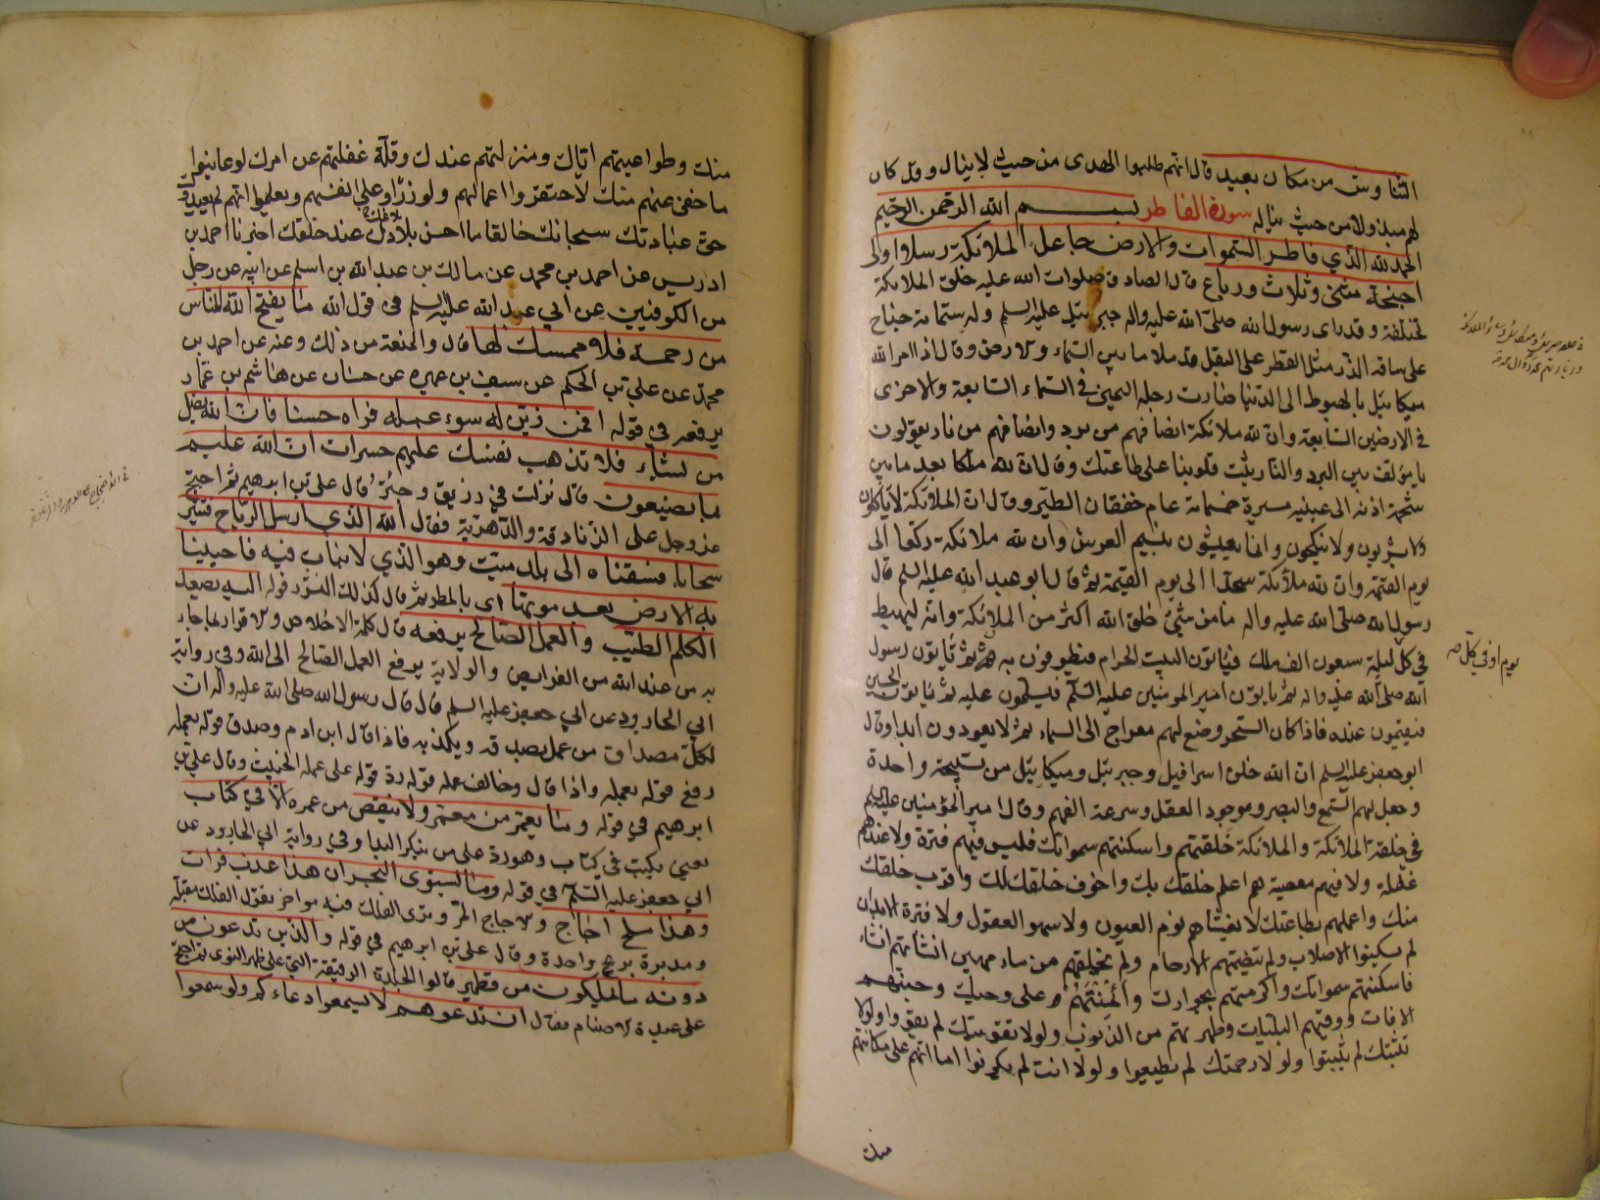 التناوش من مكان بعيد قال انهم طلبوا الهدى من حيث لا ينال وقد كان
لهم مبذولا من حيث ينال سورة الفاطر بسم الله الرحمن الرحيم
الحمد لله الذي فاطر السموات والارض جاعل الملائكة رسلا اولى
اجنحة مثنى وثلاث ورباع قال الصادق صلوات الله عليه خلق الملائكة
مختلفة وقد راى رسول الله صلى الله عليه واله جبرئيل عليه السلم وله ستمائة جناح
على ساقه الدر مثل القطر على البقل قد ملا ما بين السماء والارض وقال اذا امر الله
ميكائيل بالهبوط الى الدنيا صارت رجله اليمنى في السماء السابعة والاخرى
في الارضين السابعة وان لله ملائكة انصافهم من برد وانصافهم من نار يقولون
يا مؤلف بين البرد والنار ثبت قلوبنا على طاعتك وقال ان لله ملكا بعد ما بين
شحمة اذنه الى عينيه مسيرة خمسمائة عام خفقان الطير وقال ان الملائكة لا ياكلون
ولا يشربون ولا ينكحون وانما يعيشون بنسيم العرش وان لله ملائكة ركعا الى
يوم القيمة وان لله ملائكة سجدا الى يوم القيمة ثم قال ابو عبد الله عليه السلم قال
رسول الله صلى الله عليه واله ما من شئ خلق الله اكثر من الملائكة وانه ليهبط
في كل ليلة سبعون الف ملك فياتون البيت الحرام فيطوفون به ثم ياتون رسول
الله صلى الله عليه واله ثم ياتون امير المومنين عليه السلم فيسلمون عليه ثم ياتون الحسين
فيقيمون عنده فاذا كان السحر وضع لهم معراج الى السماء ثم لا يعودون ابدا وقال
ابو جعفر عليه السلم ان الله خلق اسرافيل وجبرئيل وميكائيل من تسبيحة واحدة
وجعل لهم السمع والبصر وموجود العقل وسرعة الفهم وقال امير المؤمنين عليه السلم
في خلقة الملائكة والملائكة خلقتهم واسكنتهم سمواتك فليس فيهم فترة ولا عندهم
غفلة ولا فيهم معصية هم اعلم خلقك بك واخوف خلقك لك واقرب خلقك
منك واعملهم بطاعتك لا يغشاهم نوم العيون ولا سهو العقول ولا فترة الابدان
لم يسكنوا الاصلاب ولم تتضمنهم الارحام ولم تخلقهم من ماء مهين انشاتهم انشاء
فاسكنتهم سمواتك واكرمتهم بجوارك وائتمنتهم على وحيك وجنبتهم
الافات ووقيتهم البليات وطهرتهم من الذنوب ولولا تقويتك لم يقووا ولولا
تثبتك لم يثبتوا ولولا رحمتك لم يطيعوا ولولا انت لم يكونوا اما انهم على مكانتهم
منك
يوم او في كل
منك وطواعيتهم اياك ومنزلتهم عندك وقلة غفلتهم عن امرك لو عاينوا
ما خفى عنهم منك لاحتقروا اعمالهم ولوزرا وعلى انفسهم ويعلموا انهم لم يعبدوك
حق عبادتك سبحانك خالقا ما احسن بلاءك عند خلقك اخبرنا احمد بن
ادريس عن احمد بن محمد عن مالك بن عبد الله بن اسلم عن ابيه عن رجل
من الكوفيين عن ابي عبد الله عليه السلم في قول الله ما يفتح الله للناس
من رحمة فلا ممسك لها قال والمتعة من ذلك وعنه عن احمد بن
محمد عن علي بن الحكم عن سيف بن عميره عن حسان عن هاشم بن عمار
يرفعه في قوله افمن زين له سوء عمله فراه حسنا فان الله يضل
من يشاء فلا تذهب نفسك عليهم حسرات ان الله عليم
بما يصنعون قال نزلت في زريق وحبتر قال علي بن ابرهيم ثم احتج
عز وجل على الزنادقة والدهرية فقال الله الذي ارسل الرياح فتثير
سحابا فسقناه الى بلد ميت وهو الذي لا نبات فيه فاحيينا
به الارض بعد موتها اى بالمطر ثم قال كذلك النشور قوله اليه يصعد
الكلم الطيب والعمل الصالح يرفعه قال كلمة الاخلاص والاقرار بما جاء
به من عند الله من الفرايض والولاية يرفع العمل الصالح الى الله وفي رواية
ابي الجارود عن ابي جعفر عليه السلم قال قال رسول الله صلى الله عليه واله ان
لكل مصداق من عمل يصدقه ويكذبه فاذا قال ابن ادم وصدق قوله بعمله
رفع قوله بعمله واذا قال وخالف عمله قوله رد قوله على عمله الخبيث وقال علي بن
ابرهيم في قوله وما يعمر من معمر ولا ينقص من عمره الا في كتاب
يعني يكتب في كتاب وهو رد على من ينكر البدا وفي رواية ابي الجارود عن
ابي جعفر عليه السلم في قوله وما يستوى البحران هذا عذب فرات
وهذا ملح اجاج والاجاج المر وترى الفلك فيه مواخر يقول الفلك مقبلة
ومدبرة بريح واحدة وقال علي بن ابرهيم في قوله والذين تدعون من
دونه ما يملكون من قطمير قالوا الجلدة الرقيقة التي على ظهر النوى ثم احتج
على عبدة الاصنام فقال ان تدعوهم لا يسمعوا دعاءكم ولو سمعوا